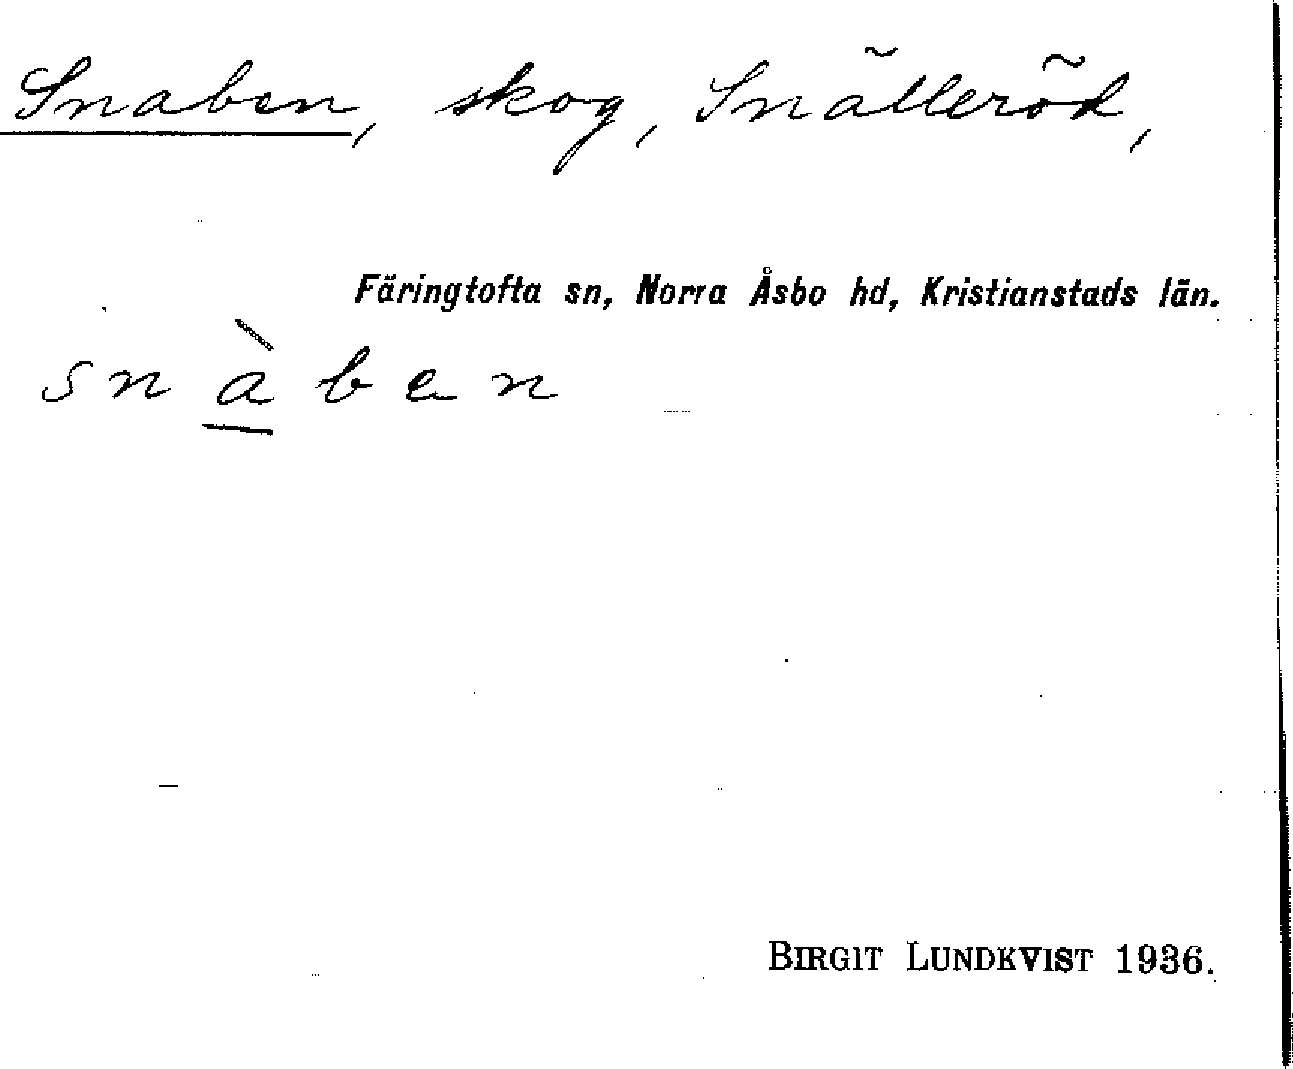 Snaben, skog, Snälleröd,
Färingtofta sn, Norra Åsbo hd, Kristianstads län.
snàben
BIRGIT LUNDKVIST 1936.